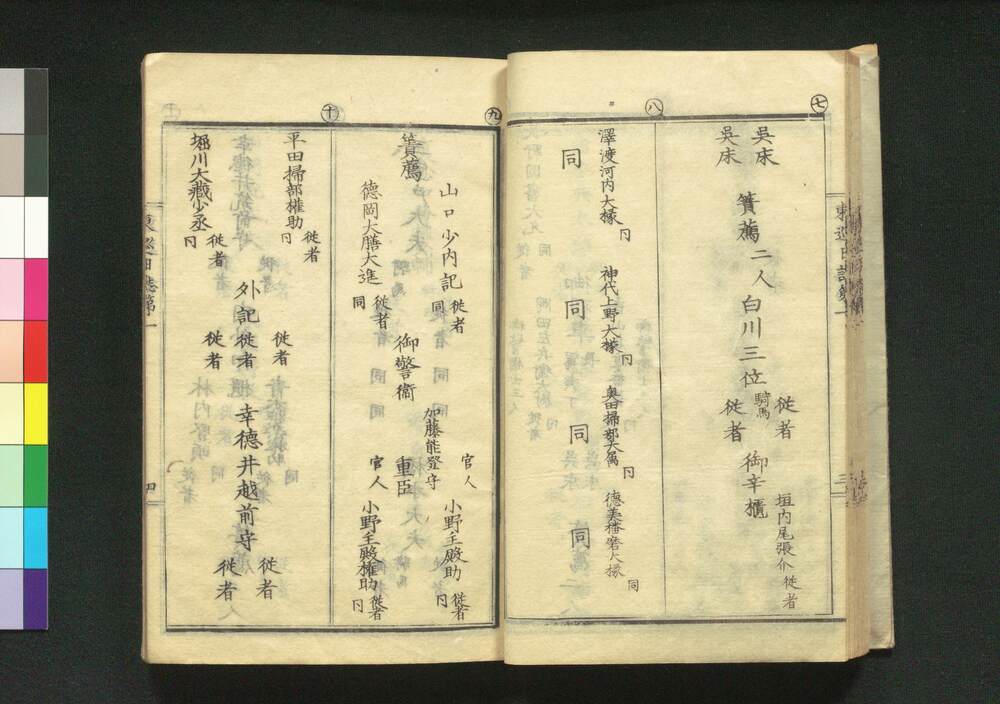 七
呉床
呉床
簀薦
二人
白川三位
騎馬
従者
従者
御辛櫃
垣内尾張介
従者
八
澤渡河内大掾
同
同
神代上野大掾
同
同
奥田掃部大属
同
同
徳美播磨大掾
同
同
東巡日誌第一
三
九
簀薦
山口少内記
従者
同
徳岡大膳大進
従者
同
御警衞
加藤能登守
重臣
官人
小野主殿助
従者
同
官人
小野主殿権助
従者
同
十
平田掃部権助
従者
同
堀川大蔵少丞
従者
同
外記
従者
従者
従者
幸徳井越前守
従者
従者
東巡日誌第一
四